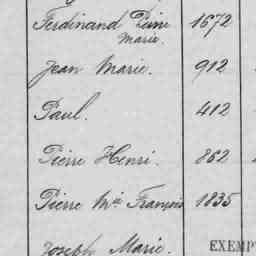 Ferdinand Pierre 1672
Marie.
Jean Marie. 912
Paul. 412
Pierre Henri. 862
Pierre Mie François 1835
Joseph Marie.
EXEMP